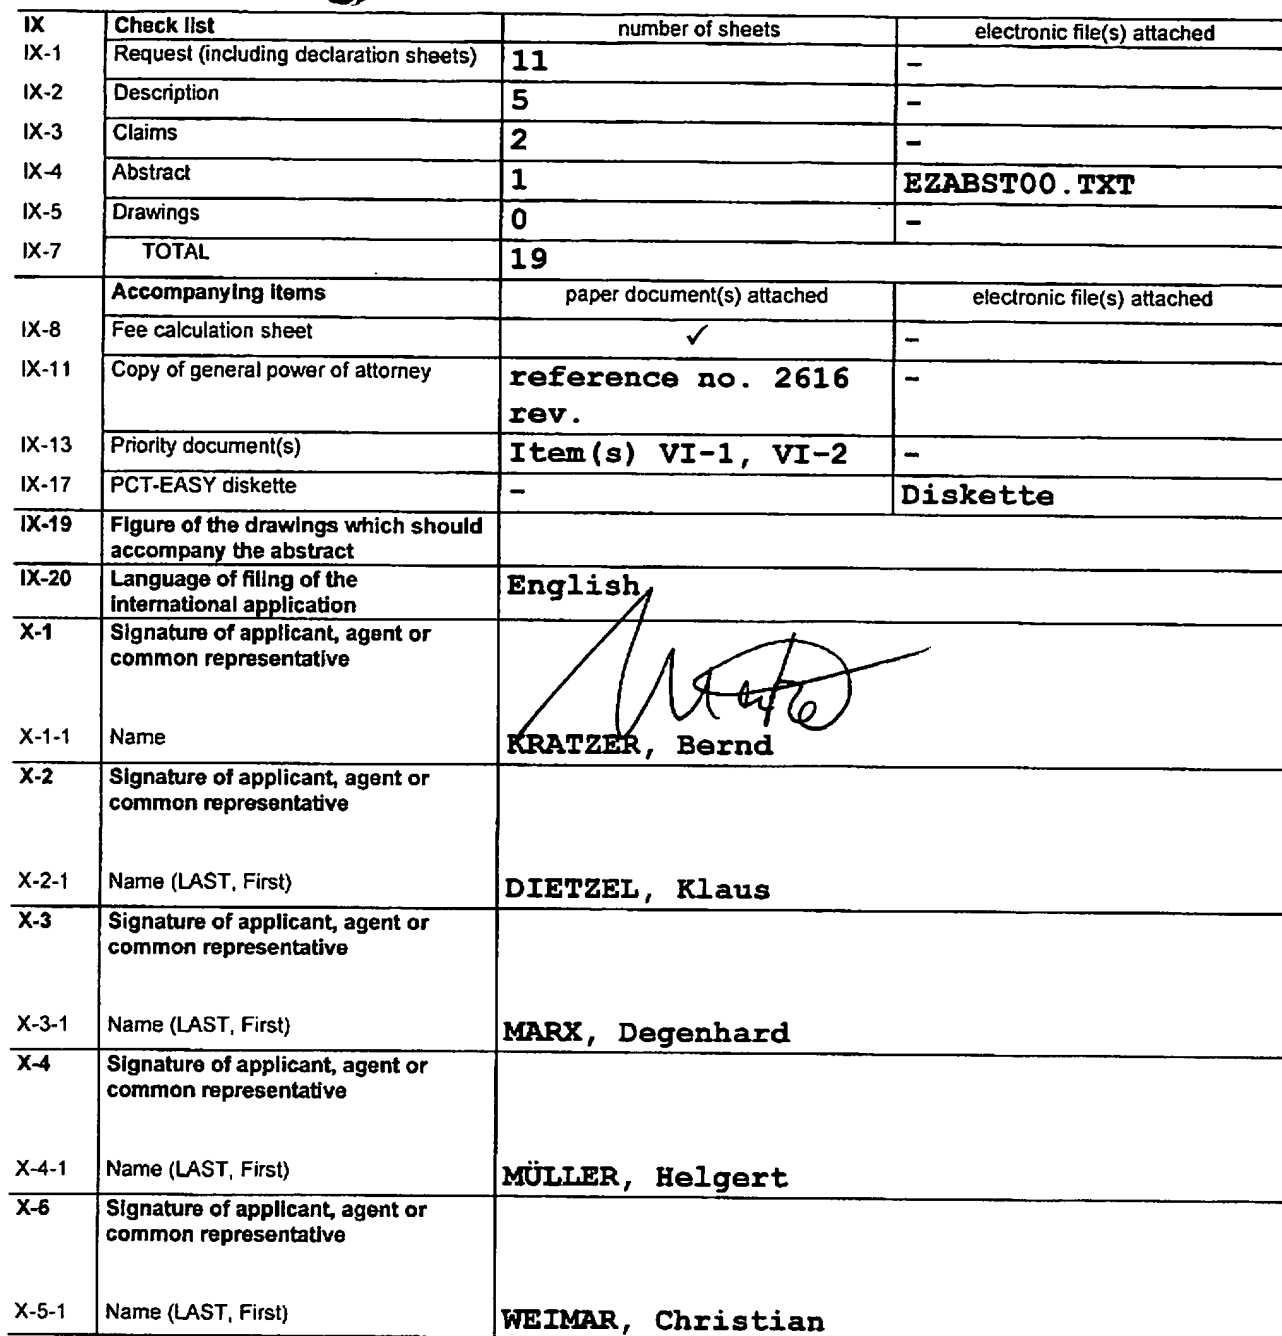 IX Check list number of sheets electronic file(s) attached
IX-1 Request (including declaration sheets) 11 -
IX-2 Description 5 -
IX-3 Claims 2 -
IX-4 Abstract 1 EZABST00.TXT
IX-5 Drawings 0 -
IX-7 TOTAL 19
Accompanying items paper document(s) attached electronic file(s) attached
IX-8 Fee calculation sheet ✓ -
IX-11 Copy of general power of attorney reference no. 2616 -
rev.
IX-13 Priority document(s) Item(s) VI-1, VI-2 -
IX-17 PCT-EASY diskette - Diskette
IX-19 Figure of the drawings which should
accompany the abstract
IX-20 Language of filing of the English
international application
X-1 Signature of applicant, agent or
common representative
X-1-1 Name KRATZER, Bernd
X-2 Signature of applicant, agent or
common representative
X-2-1 Name (LAST, First) DIETZEL, Klaus
X-3 Signature of applicant, agent or
common representative
X-3-1 Name (LAST, First) MARX, Degenhard
X-4 Signature of applicant, agent or
common representative
X-4-1 Name (LAST, First) MÜLLER, Helgert
X-5 Signature of applicant, agent or
common representative
X-5-1 Name (LAST, First) WEIMAR, Christian